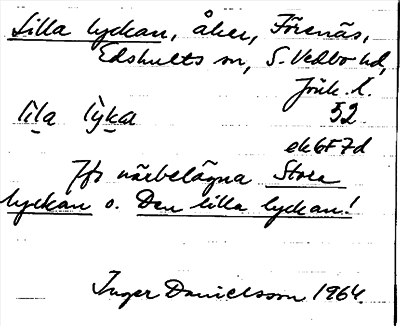 Lilla lyckan, åker, Förenäs,
Edshults sn, S. Vedbo hd,
Jönk. l.
lila lyka 52
ek6F7d
Jfr närbelägna Stora
lyckan o. Den lilla lyckan!
Inger Danielsson 1964.